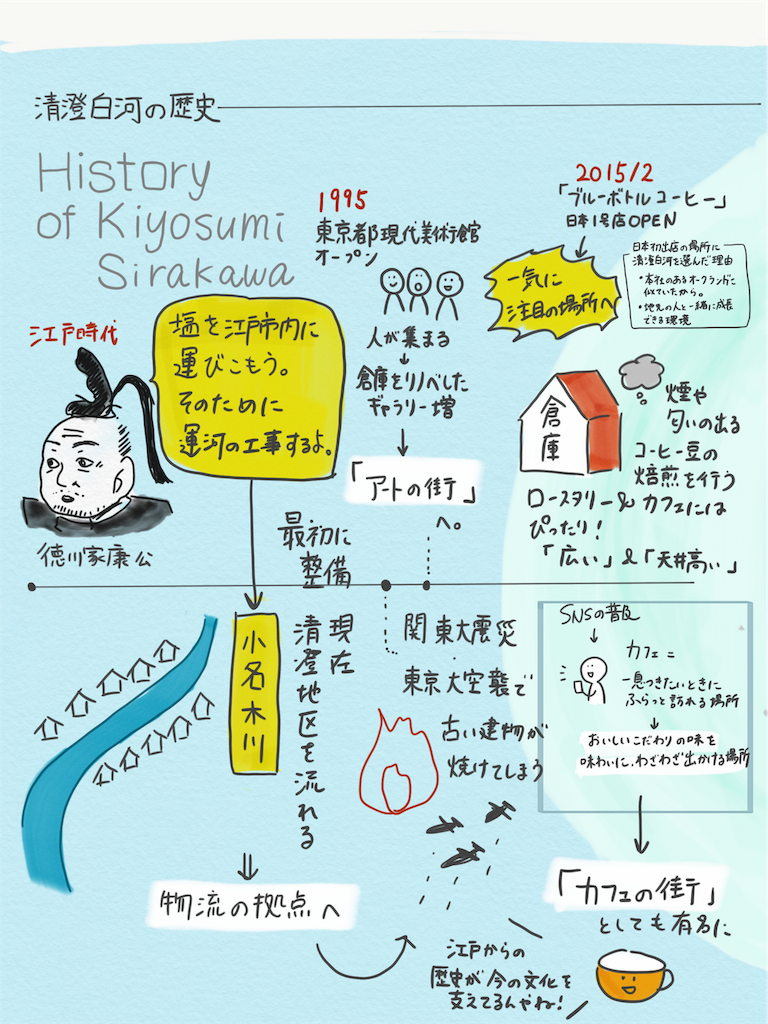 清澄白河の歴史
History
of Kiyosumi
Sirakawa
江戸時代
塩を江戸市内に
運びこもう。
そのために
運河の工事するよ。
徳川家康公
最初に
整備
小名木川
現在
清澄地区を流れる
物流の拠点へ
1995
東京都現代美術館
オープン
人が集まる
倉庫をリノベした
ギャラリー増
「アートの街」
へ。
関東大震災
東京大空襲で
古い建物が
焼けてしまう
2015/2
「ブルーボトルコーヒー」
日本1号店OPEN
一気に
注目の場所へ
日本初出店の場所に
清澄白河を選んだ理由
・本社のあるオークランドに
似ていたから。
・地元の人と一緒に成長
できる環境
倉庫
煙や
匂いの出る
コーヒー豆の
焙煎を行う
ロースタリー&カフェには
ぴったり!
「広い」&「天井高い」
SNSの普及
カフェ=
一息つきたいときに
ふらっと訪れる場所
おいしいこだわりの味を
味わいに、わざわざ出かける場所
「カフェの街」
としても有名に
江戸からの
歴史が今の文化を
支えてるんやね!